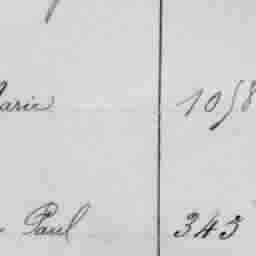 Marie 1058
Paul 343